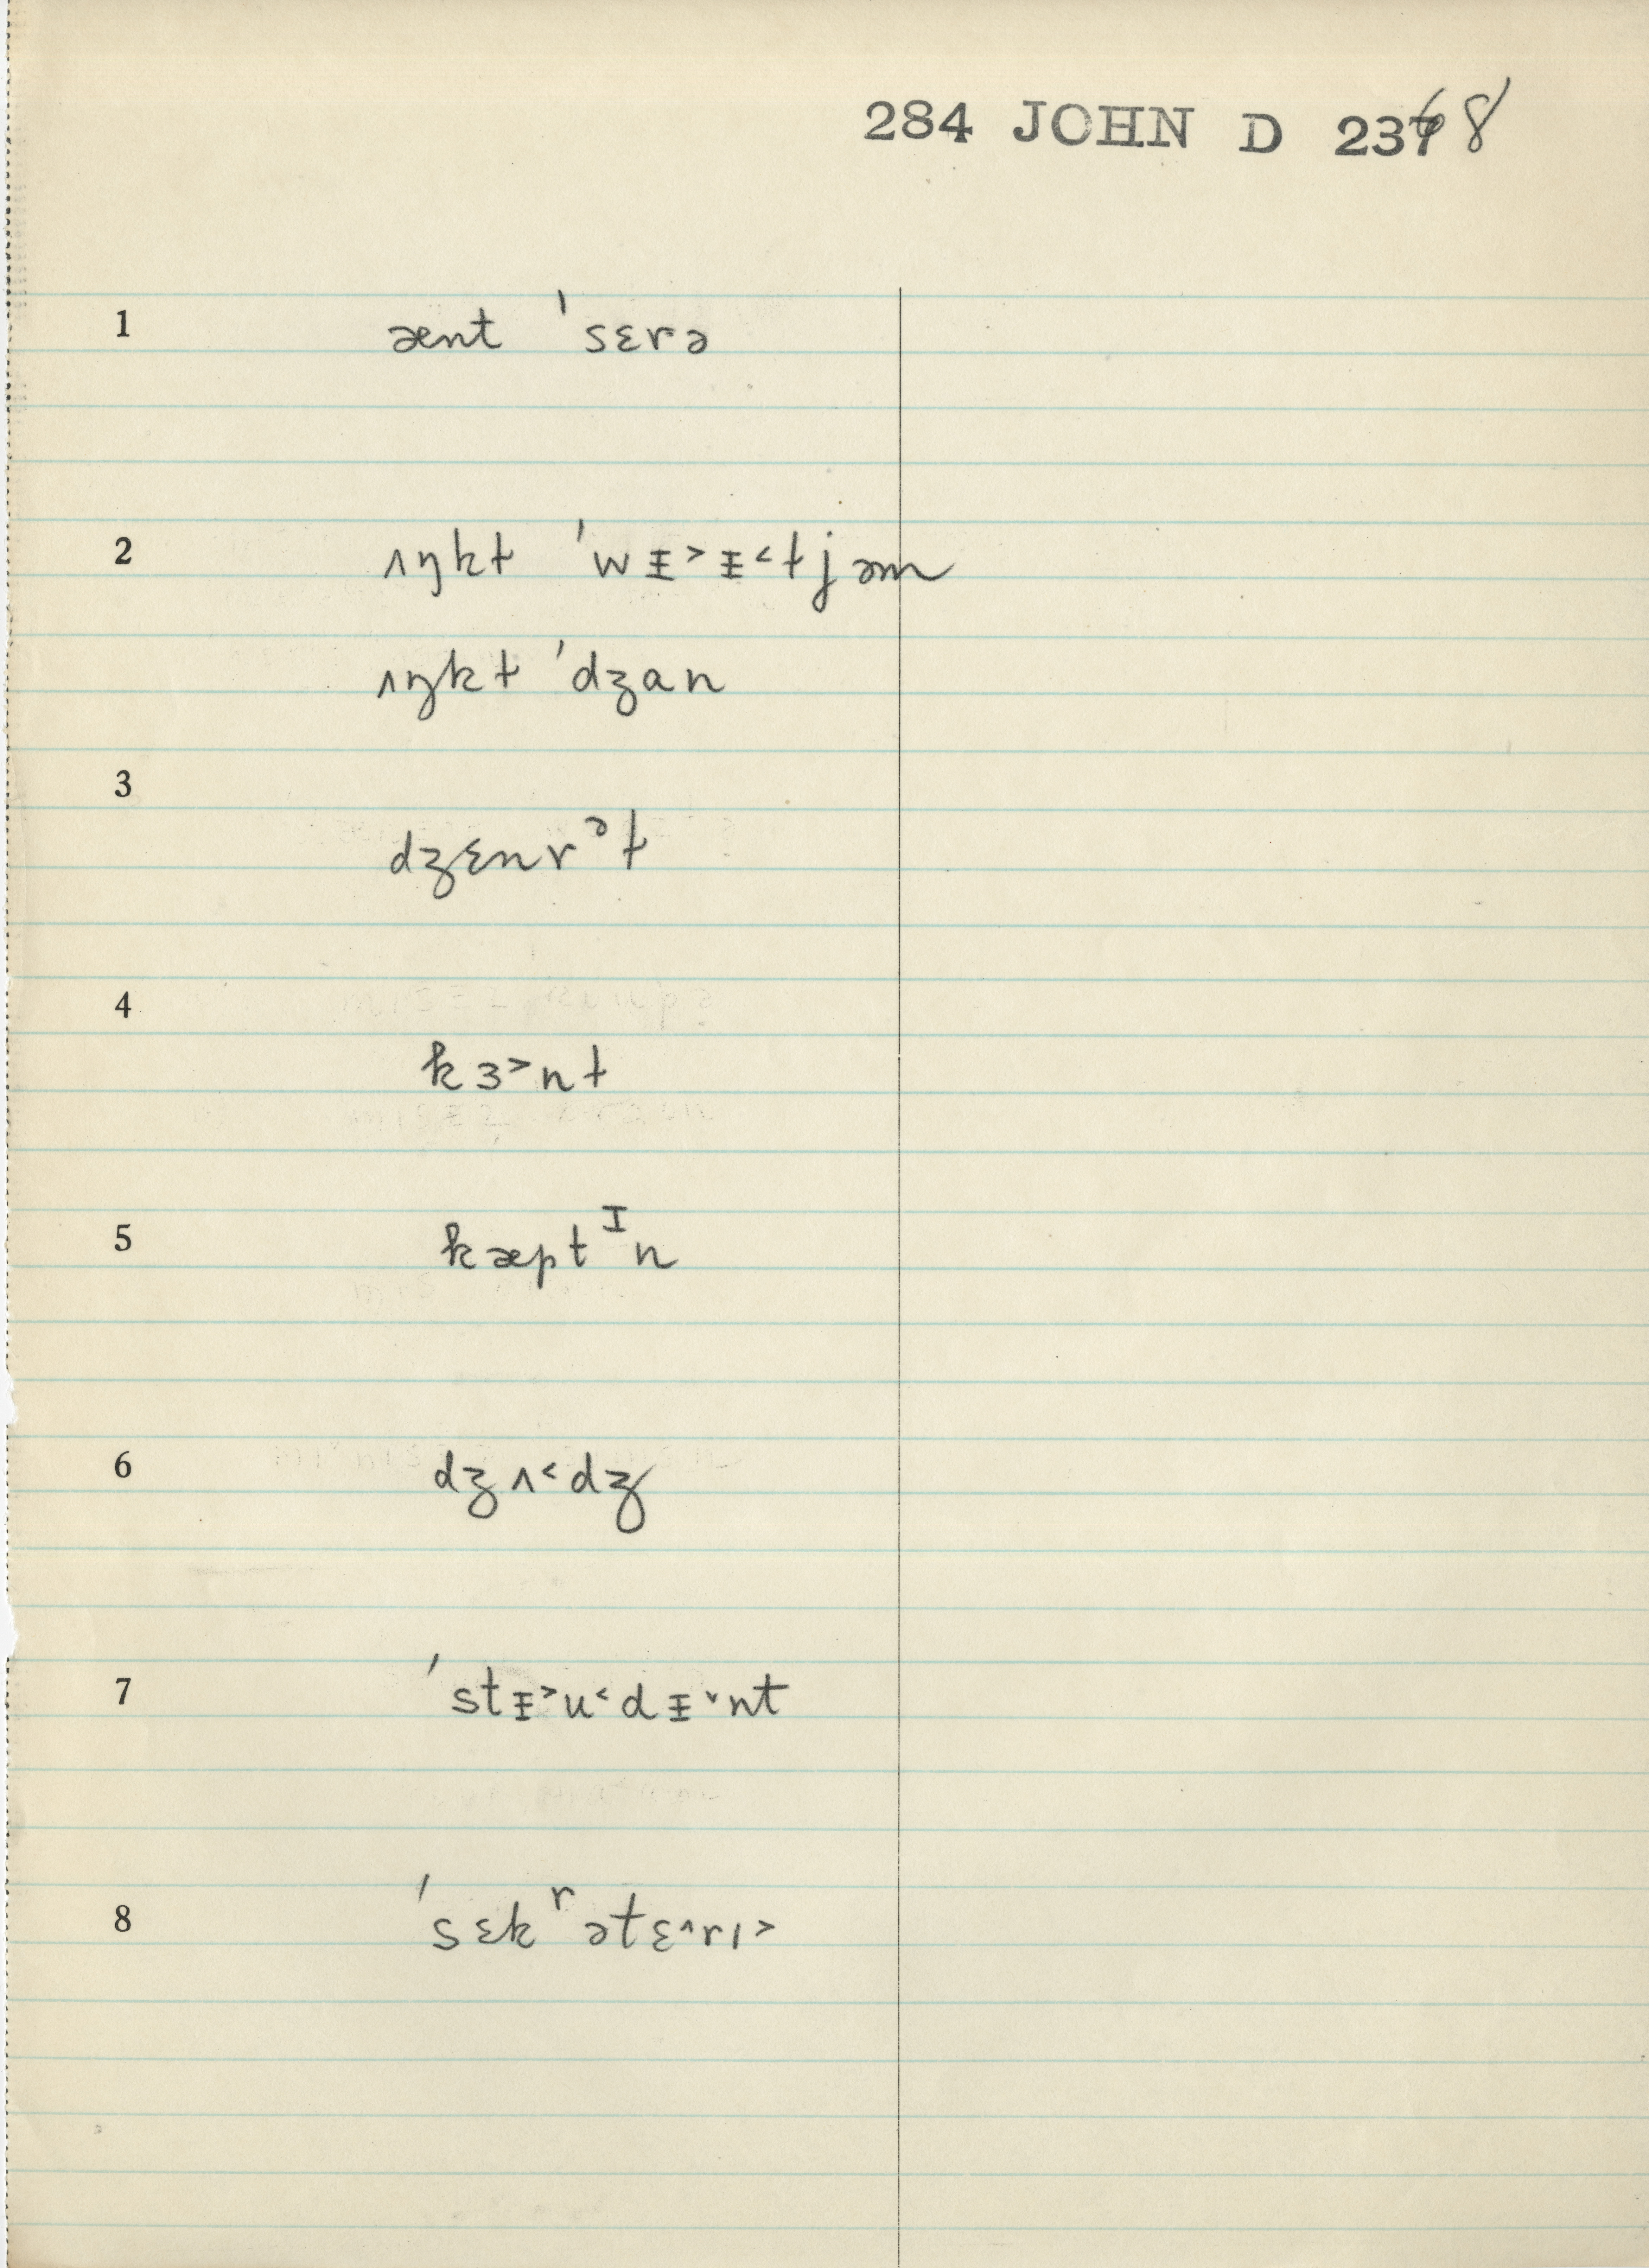 284 JOHN D 2368
1 ænt ˈsɛrə
2 ʌŋkɫ ˈwᵻ˃ᵻ˂ɫjəm
ʌŋkɫ ˈdʒan
3 dʒɛnrᵊɫ
4 kɜ˃nɫ
5 kæptᶦn
6 dʒʌ˂dʒ
7 ˈstᵻ˃u˂dᵻ˅nt
8 ˈsɛkʳətɛ˄rɪ˃